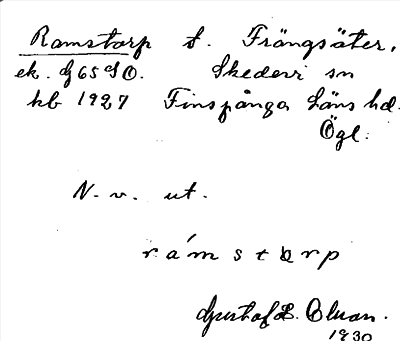 Ramstorp t. Frängsäter,
ek. bl 65 SO. Skedevi sn
kb 1927 Finspånga läns hd.
Ögl.
N. v. ut.
rámstɒrp
Gustaf E. Oluan.
1930